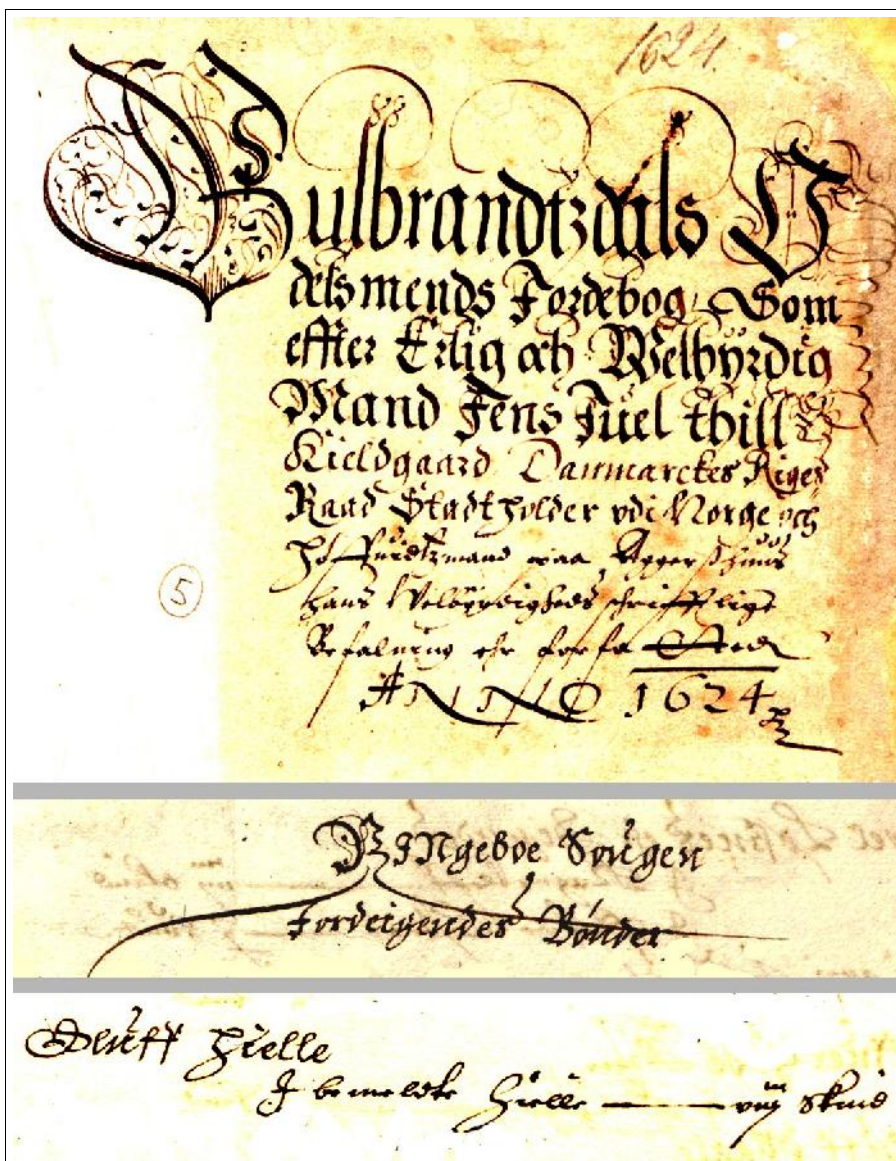 1624.
Gulbrandtzdals O
delsmends Jordebog Som
effter Erlig och Welbyrdig
Mand Jens Juel thill
Kieldgaard Danmarckes Riges
Raad Stadtholder vdi Norge och
Høffuidtzmand paa Aggerßhuus
hans Welbyrdigheds schrifftlige
Befalning ehr forfattedt
ANNO 1624
5
RINgeboe Sougen
Jordeigendes Bønder
Oluff Hielle
J bemeldte Hielle viij Skind